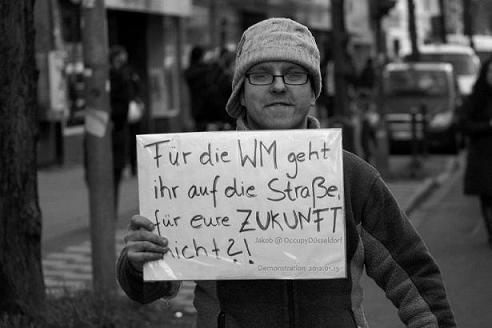 Für die WM geht
ihr auf die Straße,
für eure ZUKUNFT
nicht?!
Jakob @ OccupyDüsseldorf
Demonstration 2012.01.15